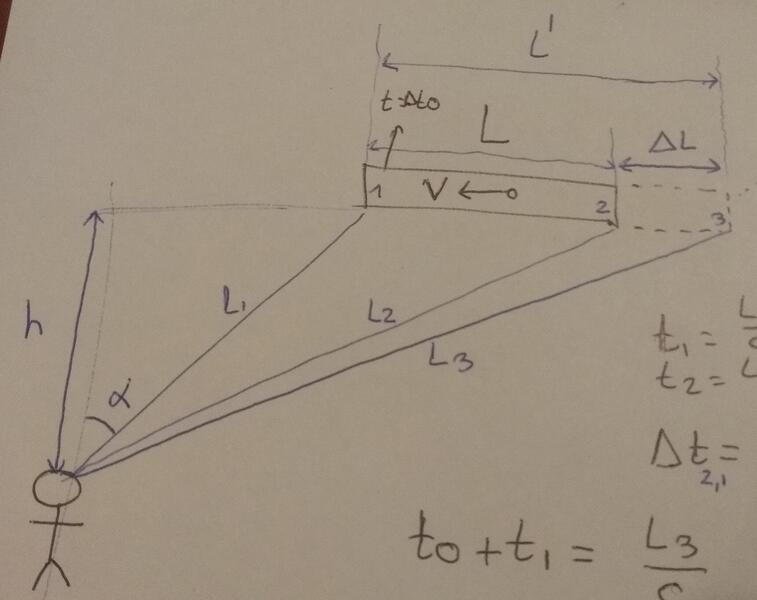 L'
t=Δt0
L
ΔL
1
V
2
3
h
L1
L2
L3
α
t1 =
t2 =
Δt2,1 =
t0 + t1 = L3